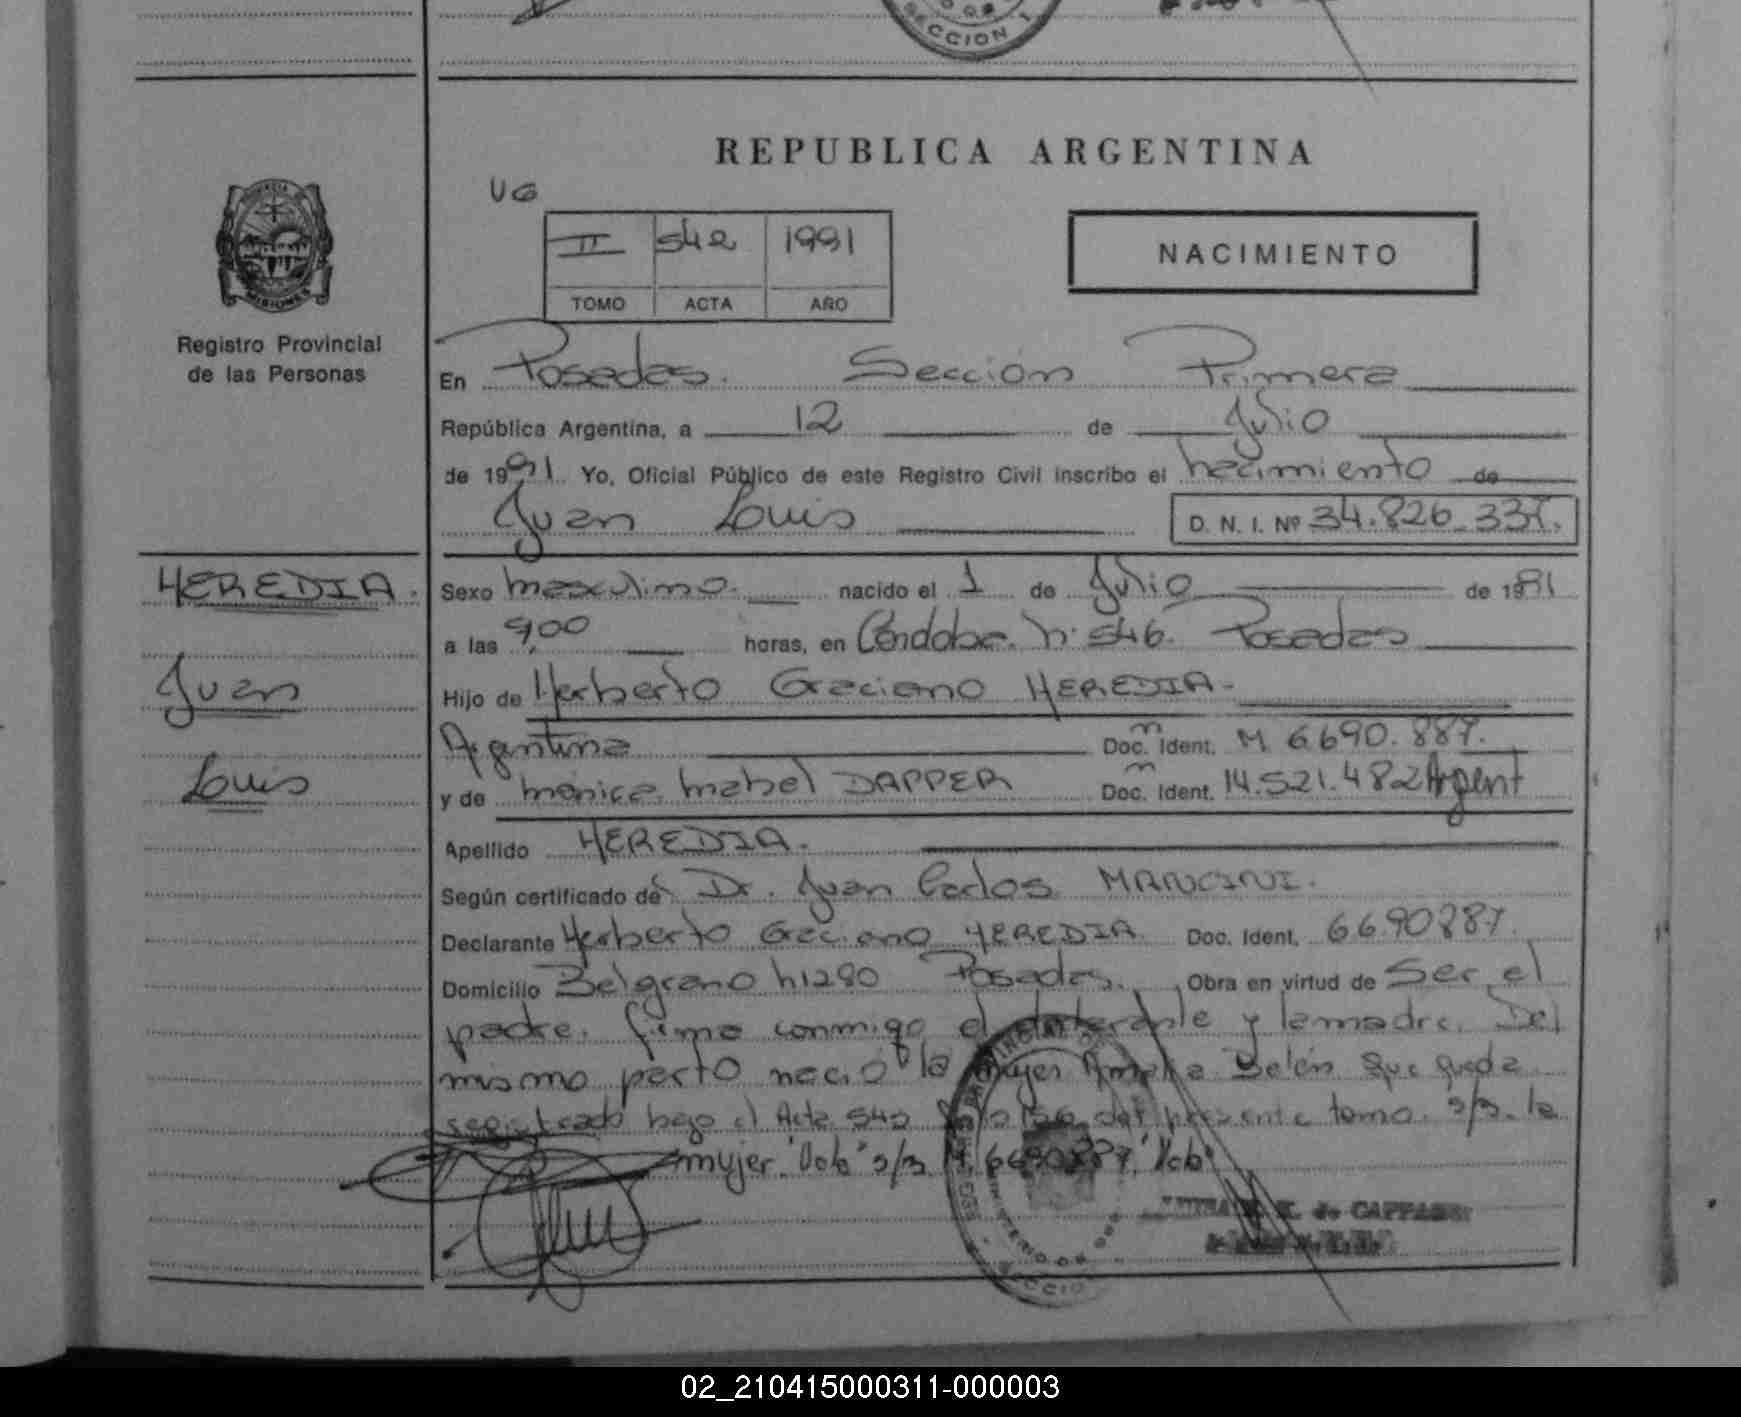 SECCION 1
REPUBLICA ARGENTINA
UG
II 542 1991
TOMO ACTA AÑO
NACIMIENTO
MISIONES
Registro Provincial
de las Personas
En Posadas. Sección Primera
República Argentina, a 12 de Julio
de 1991 Yo, Oficial Público de este Registro Civil inscribo el nacimiento de
Juan Luis D. N. I. Nº 34.826.337.
HEREDIA.
Juan
Luis
Sexo masculino. nacido el 1 de Julio de 1991
a las 9,00 horas, en Córdoba. n. 546. Posadas
Hijo de Herberto Graciano HEREDIA-
Argentina Doc. Ident. M 6690.887.
y de Mónica Mabel DAPPER Doc. Ident. 14.521.482 Argent
Apellido HEREDIA.
Según certificado de Dr. Juan Carlos MANCINI.
Declarante Herberto Graciano HEREDIA Doc. Ident. 6690887.
Domicilio Belgrano n1280 Posadas. Obra en virtud de Ser el
padre. firma conmigo el declarante y la madre. Del
mismo parto nació la mujer Amalia Belén que queda
registrado bajo el Acta 543 del presente tomo. s/r. la
mujer. "Vale" s/r M 6690887. "Vale"
02_210415000311-000003